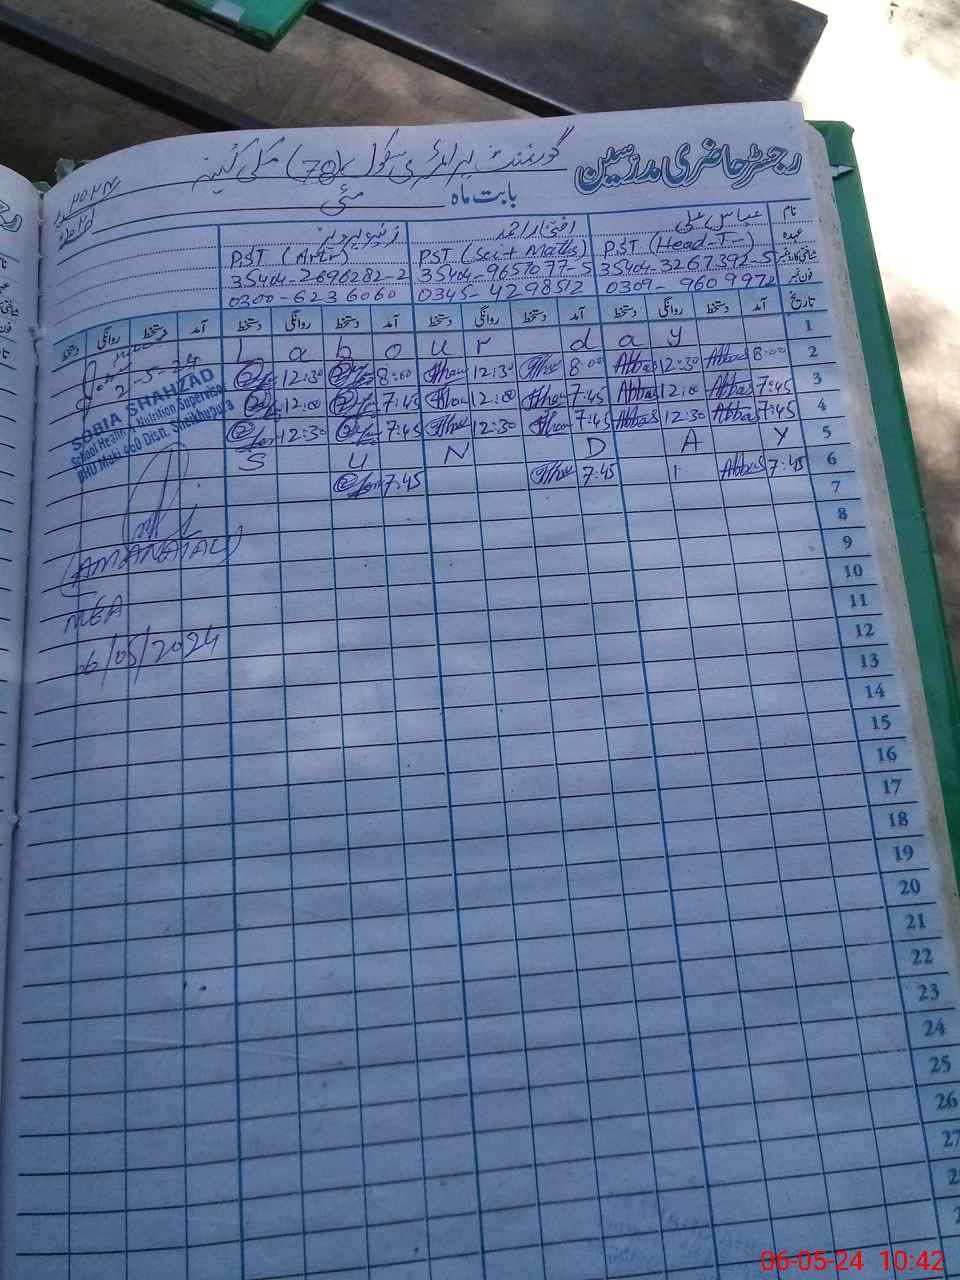 رجسٹر حاضری مدرسین
گورنمنٹ پرائمری سکول (78) مکی
بابت ماہ مئی
نام عباس علی افتخار احمد
عہدہ PST (Head-T-) PST (Sci+ Maths) PST (Arts)
شناختی کارڈ نمبر 35404-3267392-5 35404-9657077-5 35404-2696282-2
فون نمبر 0309-9609972 0345-4298512 0300-6236060
تاریخ آمد دستخط روانگی دستخط آمد دستخط روانگی دستخط آمد دستخط روانگی دستخط آمد دستخط روانگی دستخط
1 L a b o u r d a y
2 8:00 Abbas 12:30 Abbas 8:00 12:30 8:00 12:30
3 7:45 Abbas 12:00 Abbas 7:45 12:00 7:45 12:00
4 7:45 Abbas 12:30 Abbas 7:45 12:30 7:45 12:30
5 S U N D A Y
6 7:45 Abbas 7:45 7:45
7
8
9
10
11
12
13
14
15
16
17
18
19
20
21
22
23
24
25
26
27
2-5-24
SOBIA SHAHZAD
School Health & Nutrition Supervisor
BHU Maki 460 Distt. Sheikhupura
MEA
06/05/2024
06-05-24 10:42